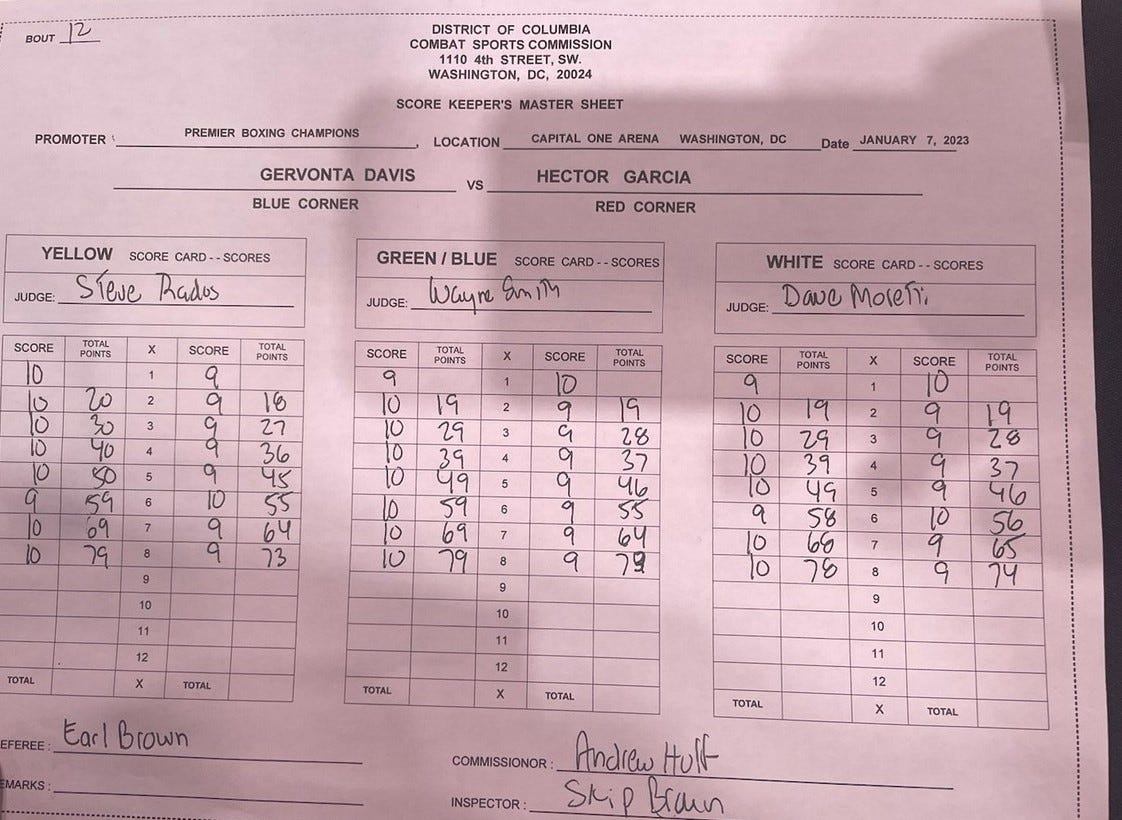 BOUT 12
DISTRICT OF COLUMBIA
COMBAT SPORTS COMMISSION
1110 4th STREET, SW.
WASHINGTON, DC, 20024
SCORE KEEPER'S MASTER SHEET
PROMOTER PREMIER BOXING CHAMPIONS, LOCATION CAPITAL ONE ARENA WASHINGTON, DC Date JANUARY 7, 2023
GERVONTA DAVIS VS HECTOR GARCIA
BLUE CORNER RED CORNER
YELLOW SCORE CARD - - SCORES
JUDGE: Steve Rados
SCORE TOTAL POINTS X SCORE TOTAL POINTS
10 1 9
10 20 2 9 18
10 30 3 9 27
10 40 4 9 36
10 50 5 9 45
9 59 6 10 55
10 69 7 9 64
10 79 8 9 73
9
10
11
12
TOTAL X TOTAL
GREEN / BLUE SCORE CARD - - SCORES
JUDGE: Wayne Smith
SCORE TOTAL POINTS X SCORE TOTAL POINTS
9 1 10
10 19 2 9 19
10 29 3 9 28
10 39 4 9 37
10 49 5 9 46
10 59 6 9 55
10 69 7 9 64
10 79 8 9
9
10
11
12
TOTAL X TOTAL
WHITE SCORE CARD - - SCORES
JUDGE: Dave Moretti
SCORE TOTAL POINTS X SCORE TOTAL POINTS
9 1 10
10 19 2 9 19
10 29 3 9 28
10 39 4 9 37
10 49 5 9 46
9 58 6 10 56
10 68 7 9 65
10 78 8 9 74
9
10
11
12
TOTAL X TOTAL
EFEREE: Earl Brown
COMMISSIONOR: Andrew Huff
EMARKS:
INSPECTOR: Skip Brown